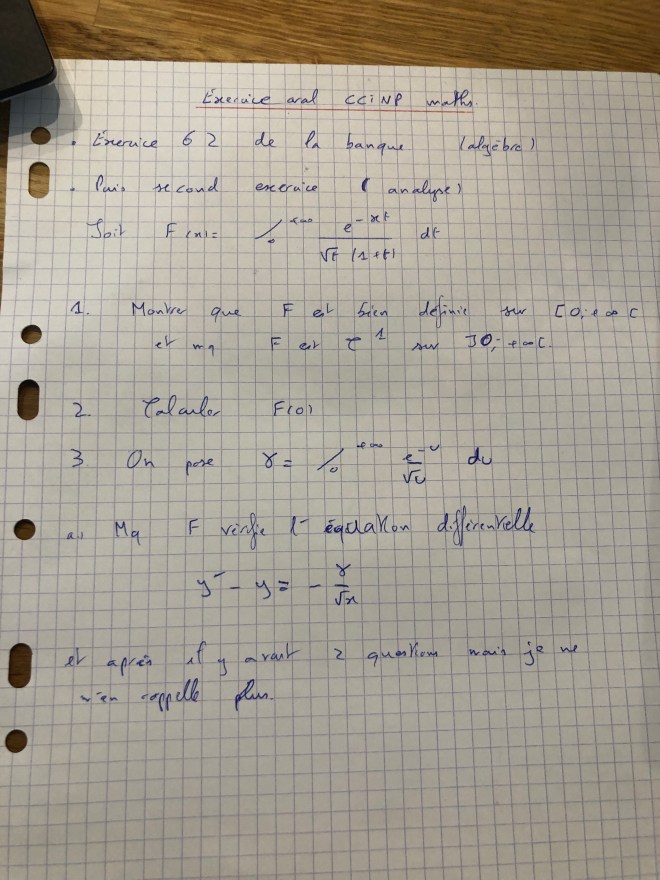 Exercice oral CCINP maths.
• Exercice 62 de la banque (algèbre)
• Puis second exercice (analyse)
Soit F(x) = ∫₀^{+∞} e^{-xt} / (√t (1+t)) dt
1. Montrer que F est bien définie sur [0; +∞[
et mq F est C¹ sur ]0; +∞[.
2. Calculer F(0)
3. On pose γ = ∫₀^{+∞} e^{-u} / √u du
a. Mq F vérifie l' équation différentielle
y' - y = - γ / √x
et après il y avait 2 questions mais je ne
m'en rappelle plus.